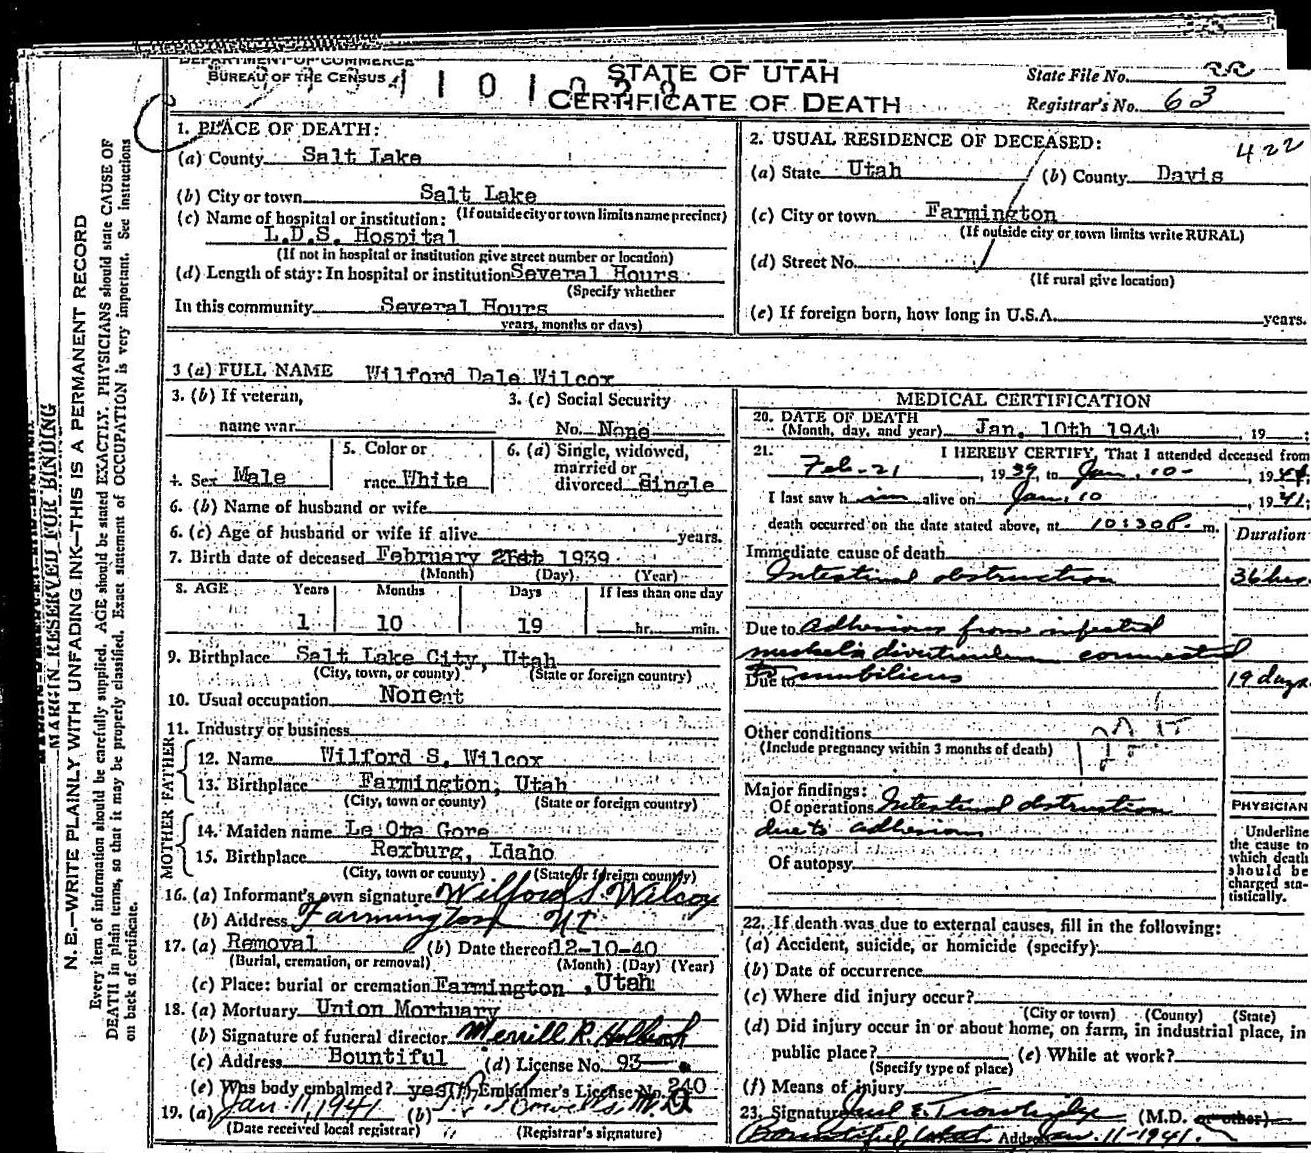 DEPARTMENT OF COMMERCE
BUREAU OF THE CENSUS
STATE OF UTAH
CERTIFICATE OF DEATH
State File No. 22
Registrar's No. 63
MARGIN RESERVED FOR BINDING
N. B.—WRITE PLAINLY WITH UNFADING INK—THIS IS A PERMANENT RECORD
Every item of information should be carefully supplied. AGE should be stated EXACTLY. PHYSICIANS should state CAUSE OF
DEATH in plain terms, so that it may be properly classified. Exact statement of OCCUPATION is very important. See instructions
on back of certificate.
1. PLACE OF DEATH:
(a) County Salt Lake
(b) City or town Salt Lake
(If outside city or town limits name precinct)
(c) Name of hospital or institution:
L.D.S. Hospital
(If not in hospital or institution give street number or location)
(d) Length of stay: In hospital or institution Several Hours
(Specify whether
In this community Several Hours
years, months or days)
2. USUAL RESIDENCE OF DECEASED:
422
(a) State Utah (b) County Davis
(c) City or town Farmington
(If outside city or town limits write RURAL)
(d) Street No.
(If rural give location)
(e) If foreign born, how long in U.S.A. years.
3 (a) FULL NAME Wilford Dale Wilcox
3. (b) If veteran, name war
3. (c) Social Security No. None
4. Sex Male
5. Color or race White
6. (a) Single, widowed, married or divorced Single
6. (b) Name of husband or wife
6. (c) Age of husband or wife if alive years.
7. Birth date of deceased February 21st 1939
(Month) (Day) (Year)
8. AGE Years Months Days If less than one day
1 10 19 hr. min.
9. Birthplace Salt Lake City, Utah
(City, town, or county) (State or foreign country)
10. Usual occupation Nonent
11. Industry or business
FATHER
12. Name Wilford S. Wilcox
13. Birthplace Farmington, Utah
(City, town or county) (State or foreign country)
MOTHER
14. Maiden name Le Ota Gore
15. Birthplace Rexburg, Idaho
(City, town or county) (State or foreign country)
16. (a) Informant's own signature Wilford S Wilcox
(b) Address Farmington Ut
17. (a) Removal (b) Date thereof 12-10-40
(Burial, cremation, or removal) (Month) (Day) (Year)
(c) Place: burial or cremation Farmington, Utah
18. (a) Mortuary Union Mortuary
(b) Signature of funeral director Merrill R. Holbrook
(c) Address Bountiful (d) License No. 93
(e) Was body embalmed? yes Embalmer's License No. 240
19. (a) Jan. 11, 1941 (b) M.D.
(Date received local registrar) (Registrar's signature)
MEDICAL CERTIFICATION
20. DATE OF DEATH
(Month, day, and year) Jan. 10th 1941, 19 ;
21. I HEREBY CERTIFY, That I attended deceased from
Feb-21, 1939, to Jan. 10-, 1941
I last saw him alive on Jan. 10, 1941;
death occurred on the date stated above, at 10:30 P. m.
Duration
Immediate cause of death
Intestinal obstruction 36 hrs.
Due to adhesions from infected
meckels diverticulum connected
Due to to umbilicus 19 days
Other conditions
(Include pregnancy within 3 months of death)
Major findings:
Of operations Intestinal obstruction
due to adhesions
Of autopsy
PHYSICIAN
Underline
the cause to
which death
should be
charged sta-
tistically.
22. If death was due to external causes, fill in the following:
(a) Accident, suicide, or homicide (specify)
(b) Date of occurrence
(c) Where did injury occur?
(City or town) (County) (State)
(d) Did injury occur in or about home, on farm, in industrial place, in
public place? (e) While at work?
(Specify type of place)
(f) Means of injury
23. Signature E. Trowbridge (M.D. or other)
Bountiful, Utah Address Jan. 11-1941.